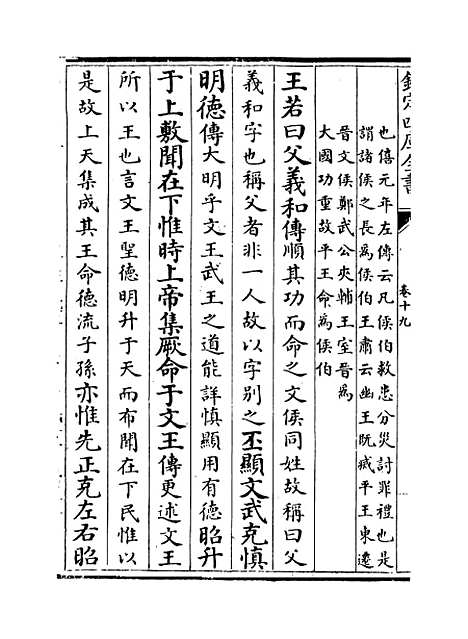 欽定四庫全書
卷十九
也僖元年左傳云凡侯伯救患分災討罪禮也是
謂諸侯之長為侯伯王肅云幽王既滅平王東遷
晉文侯鄭武公夾輔王室晉為
大國功重故平王命為侯伯
王若曰父義和傳順其功而命之文侯同姓故稱曰父
義和字也稱父者非一人故以字別之丕顯文武克慎
明德傳大明乎文王武王之道能詳慎顯用有德昭升
于上敷聞在下惟時上帝集厥命于文王傳更述文王
所以王也言文王聖德明升于天而布聞在下民惟以
是故上天集成其王命德流子孫亦惟先正克左右昭